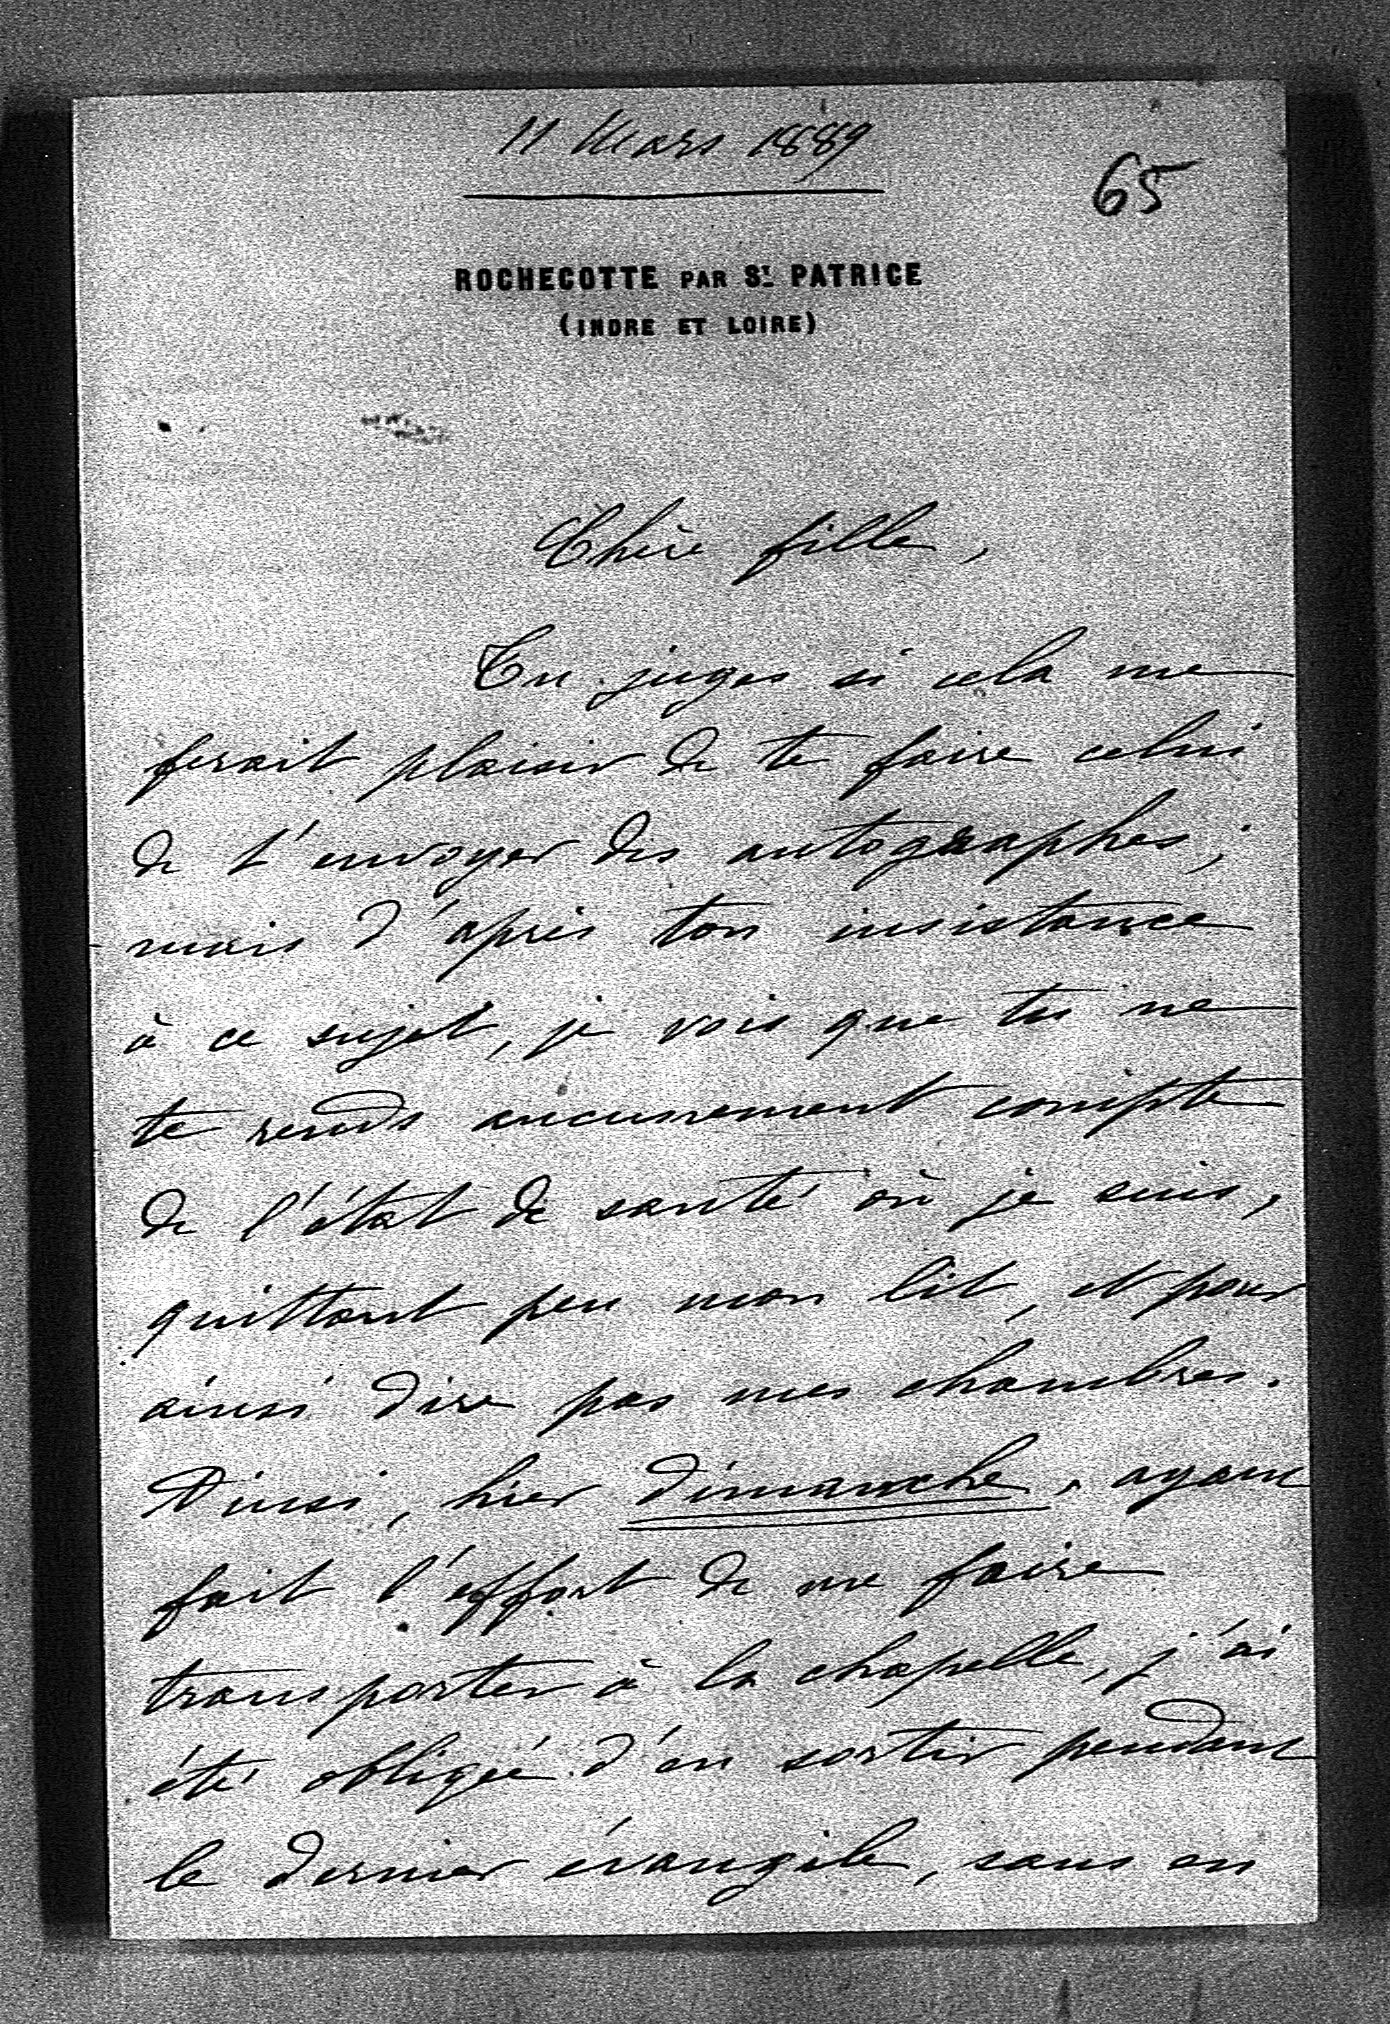 11 Mars 1889
65
ROCHECOTTE PAR St PATRICE
(INDRE ET LOIRE)
Chère fille,
Tu juges si cela me
ferait plaisir de te faire celui
de t'envoyer des autographes;
mais d'après ton insistance
à ce sujet, je vois que tu ne
te rends aucunement compte
de l'état de santé où je suis,
quittant peu mon lit, et pour
ainsi dire pas mes chambres.
Ainsi, hier dimanche, ayant
fait l'effort de me faire
transporter à la chapelle, j'ai
été obligée d'en sortir pendant
le dernier évangile, sans en